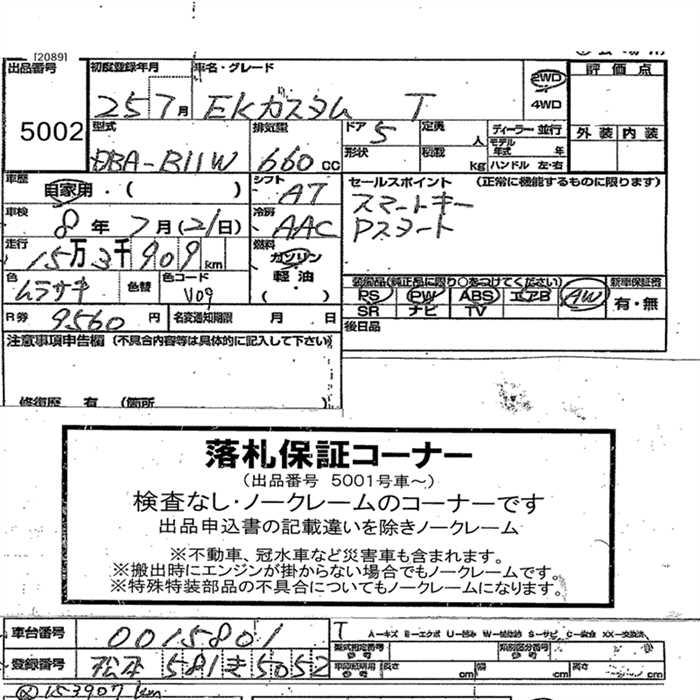 [2089]
出品番号 5002
初度登録年月 25 7月
車名・グレード EKカスタム T
2WD 4WD
評価点
外装 内装
型式 DBA-B11W
排気量 660cc
ドア 5
形状
定員 人
積載 kg
ディーラー 並行
モデル年式 年
ハンドル 左・右
車歴 自家用・( )
シフト AT
セールスポイント (正常に機能するものに限ります)
スマートキー
Pスタート
車検 8年7月(21日)
冷房 AAC
走行 15万3千909km
燃料 ガソリン 軽油 ・( )
色 ムラサキ 色替
色コード V09
装備品(純正品に限り○をつけてください)
PS PW ABS エアB AW
SR ナビ TV
新車保証書 有・無
R券 9560円
名変通知期限 月 日
後日品
注意事項申告欄 (不具合内容等は具体的に記入して下さい)
修復歴 有 (箇所 )
落札保証コーナー
(出品番号 5001号車~)
検査なし・ノークレームのコーナーです
出品申込書の記載違いを除きノークレーム
※不動車、冠水車など災害車も含まれます。
※搬出時にエンジンが掛からない場合でもノークレームです。
※特殊特装部品の不具合についてもノークレームになります。
車台番号 0015801
T
A―キズ E―エクボ U―凹み W―補修跡 S―サビ C―腐食 XX―交換済
登録番号 松本 581 き 5052
型式指定番号 類別区分番号
長さ cm 幅 cm 高さ cm
153907km